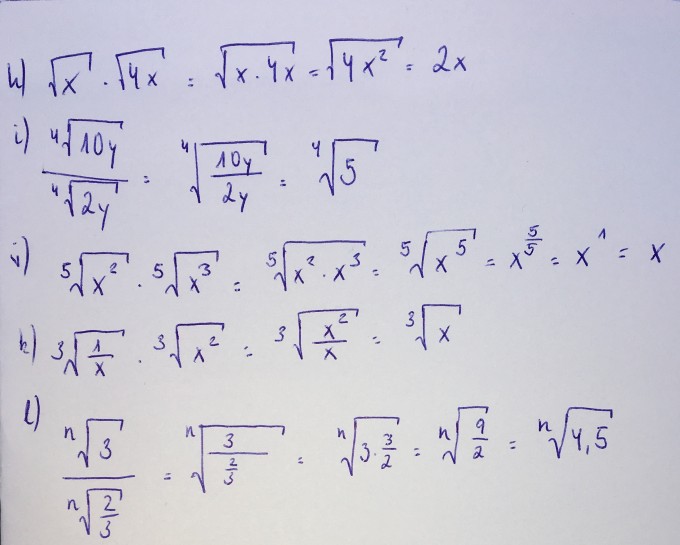 h) √x · √4x = √x · 4x = √4x² = 2x
i) ⁴√10y / ⁴√2y = ⁴√(10y/2y) = ⁴√5
j) ⁵√x² · ⁵√x³ = ⁵√x² · x³ = ⁵√x⁵ = x^(5/5) = x¹ = x
k) ³√(1/x) · ³√x² = ³√(x²/x) = ³√x
l) ⁿ√3 / ⁿ√(2/3) = ⁿ√(3/(2/3)) = ⁿ√(3 · 3/2) = ⁿ√(9/2) = ⁿ√4,5